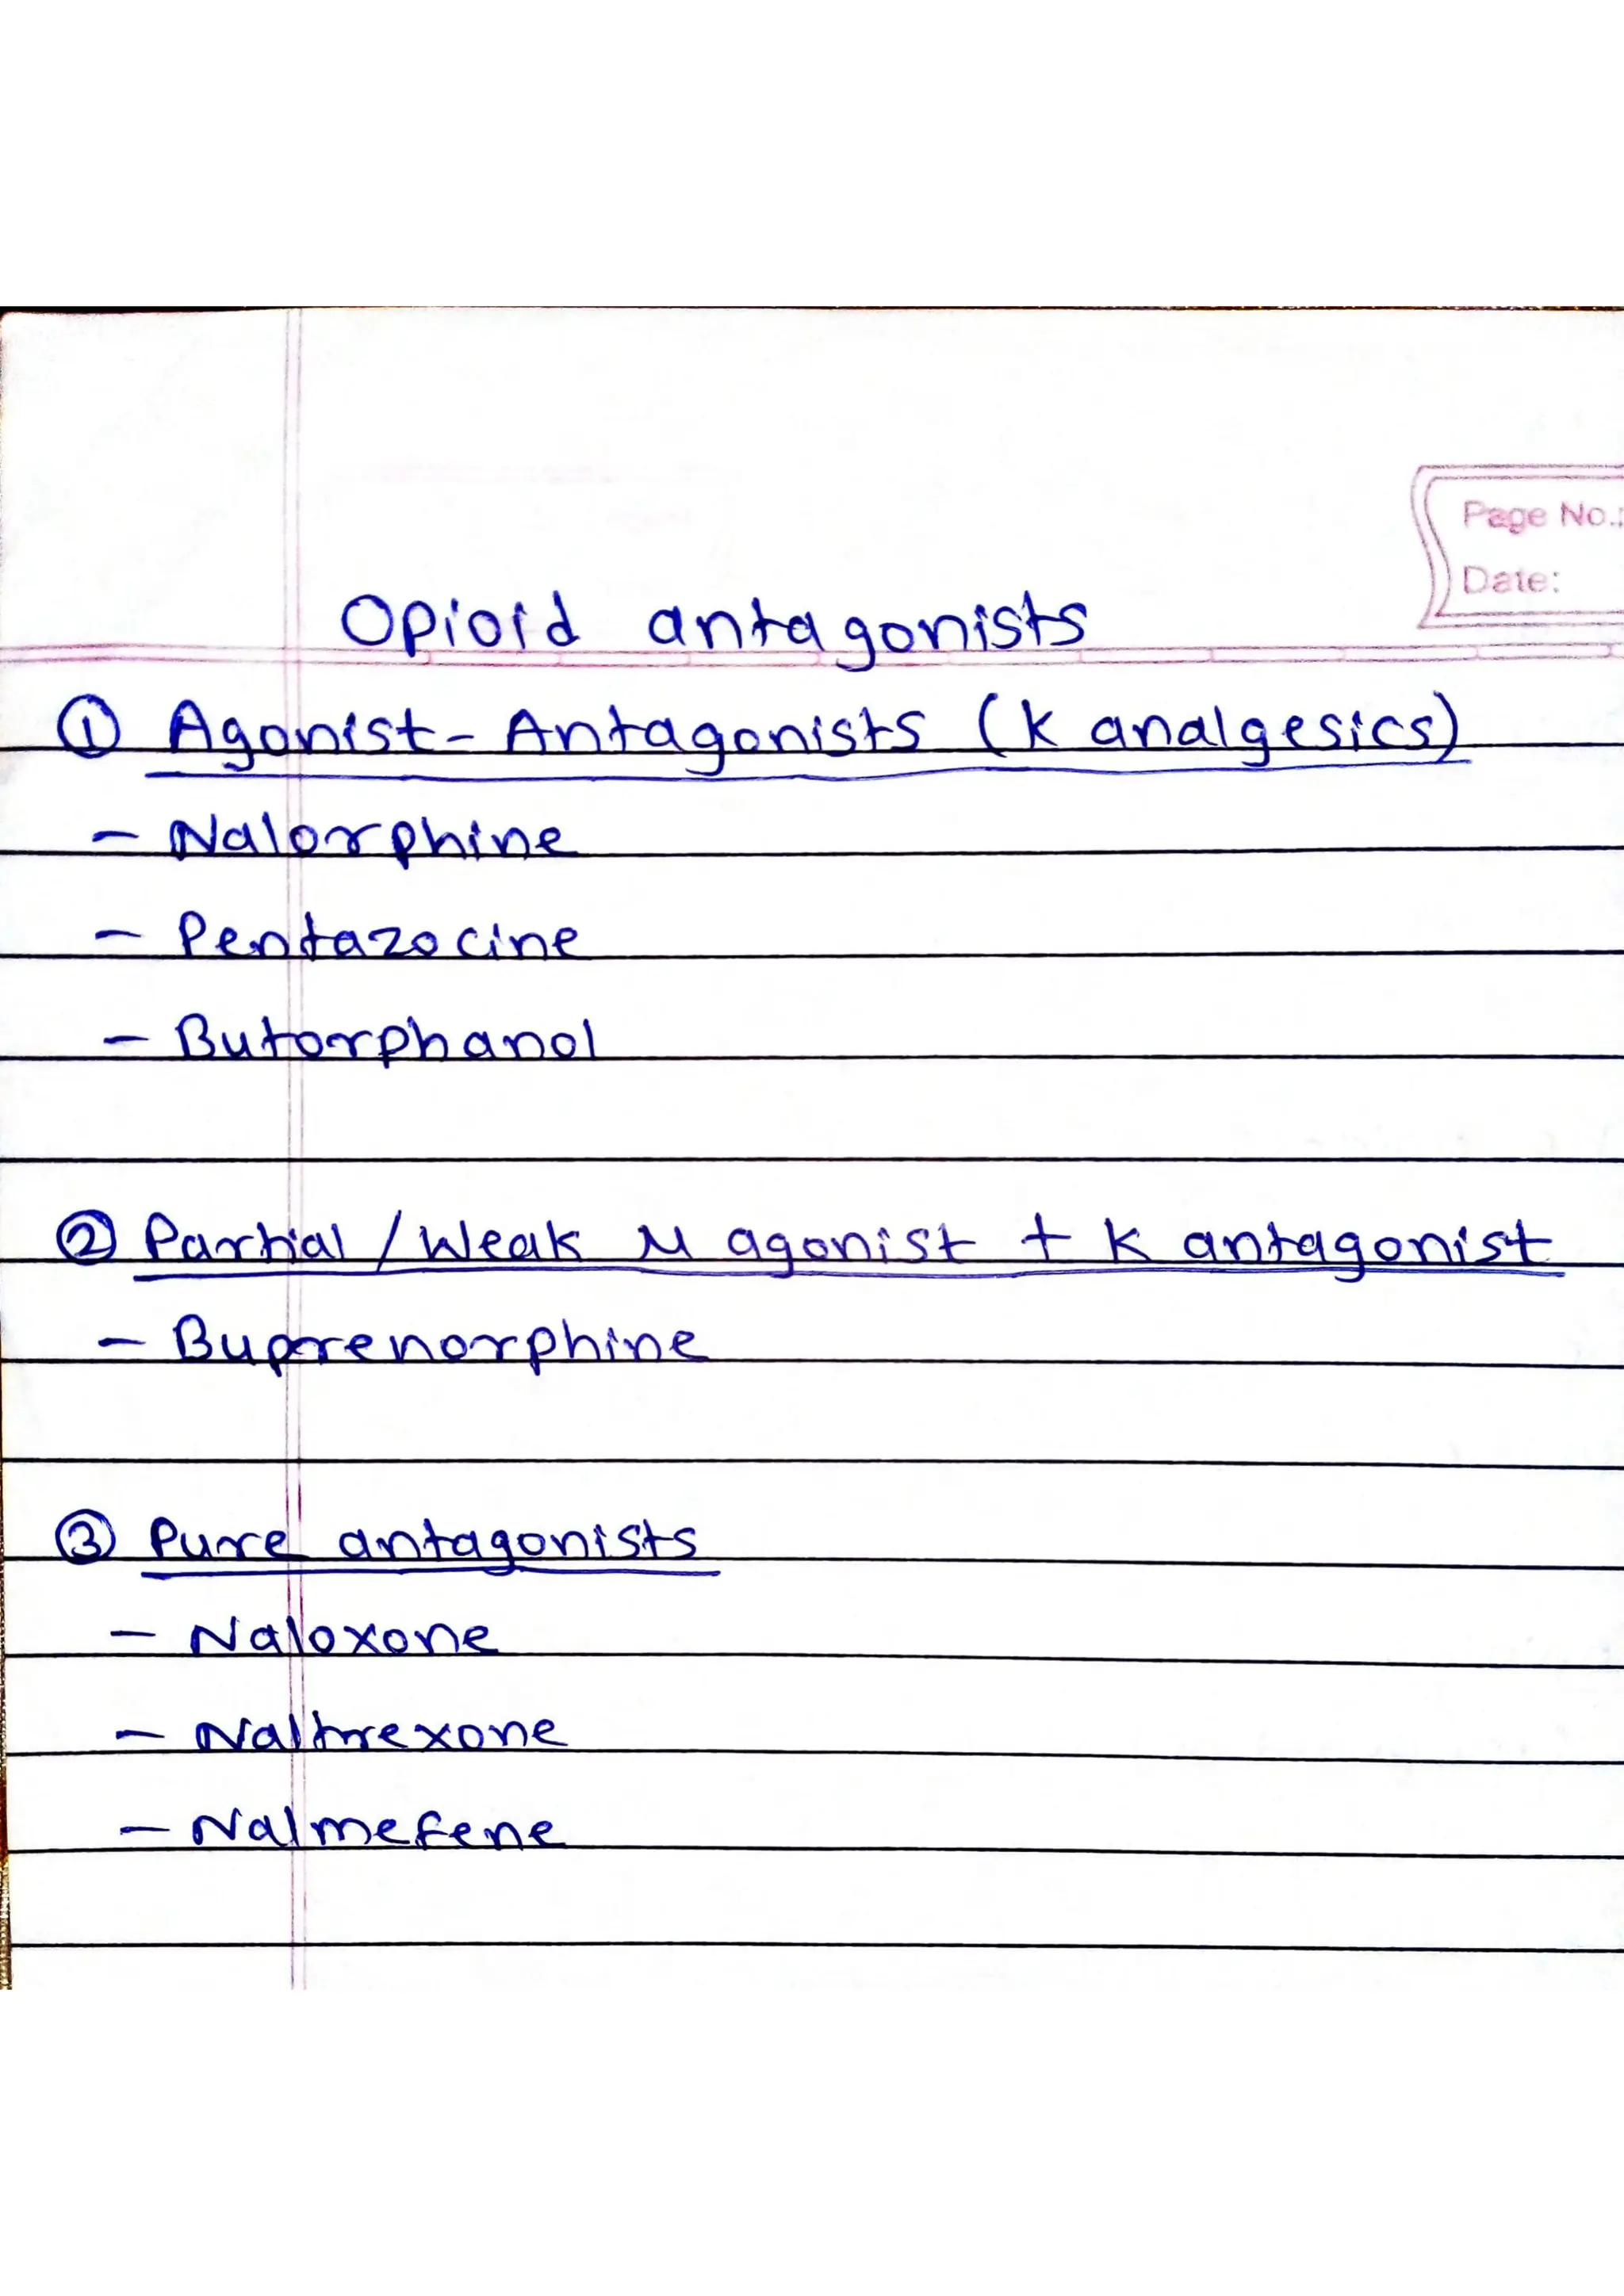 Page No.:
Date:
Opioid antagonists
① Agonist-Antagonists (K analgesics)
- Nalorphine
- Pentazocine
- Butorphanol
② Partial/Weak μ agonist + K antagonist
- Buprenorphine
③ Pure antagonists
- Naloxone
- Naltrexone
- Nalmefene